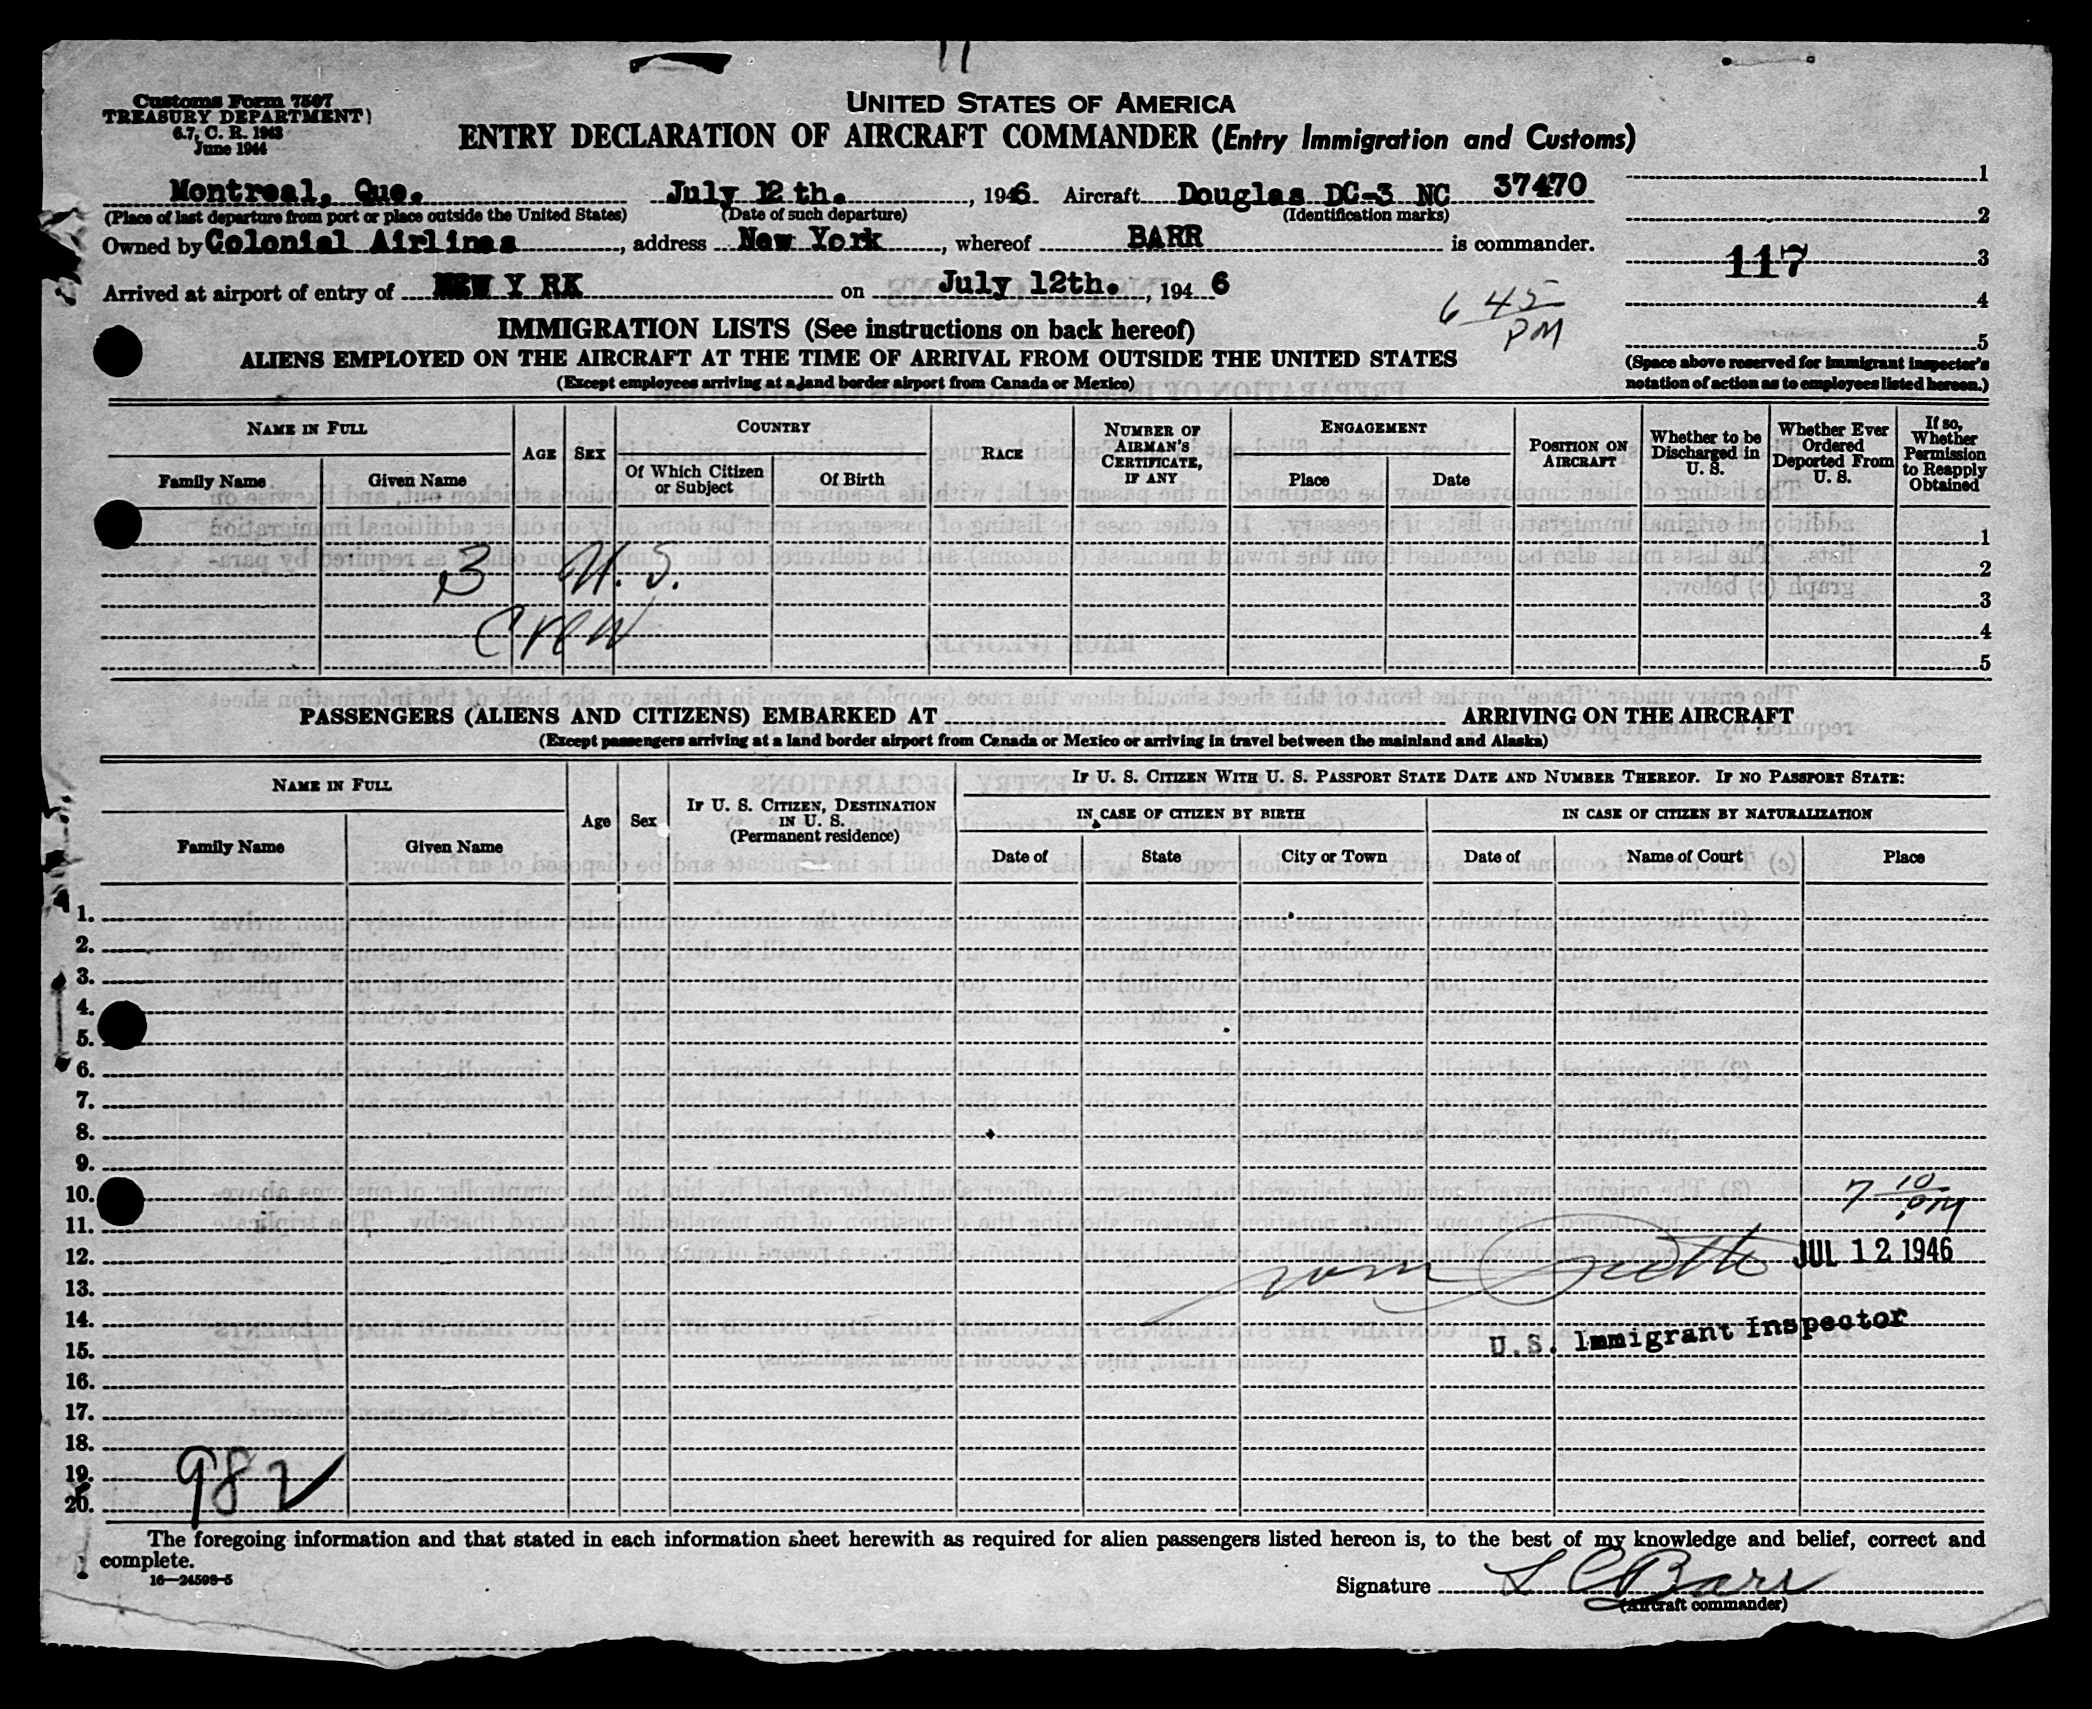 Customs Form 7507
TREASURY DEPARTMENT)
6.7, C. R. 1943
June 1944
UNITED STATES OF AMERICA
ENTRY DECLARATION OF AIRCRAFT COMMANDER (Entry Immigration and Customs)
Montreal, Que. July 12 th. , 1946 Aircraft Douglas DC-3 NC 37470
(Place of last departure from port or place outside the United States) (Date of such departure) (Identification marks)
Owned by Colonial Airlines , address New York , whereof BARR is commander.
Arrived at airport of entry of NEW Y RK on July 12th. , 194 6
1
2
117 3
4
5
(Space above reserved for immigrant inspector's
notation of action as to employees listed hereon.)
6 45 PM
IMMIGRATION LISTS (See instructions on back hereof)
ALIENS EMPLOYED ON THE AIRCRAFT AT THE TIME OF ARRIVAL FROM OUTSIDE THE UNITED STATES
(Except employees arriving at a land border airport from Canada or Mexico)
NAME IN FULL
Family Name Given Name
AGE SEX
COUNTRY
Of Which Citizen or Subject Of Birth
RACE
NUMBER OF AIRMAN'S CERTIFICATE, IF ANY
ENGAGEMENT
Place Date
POSITION ON AIRCRAFT
Whether to be Discharged in U. S.
Whether Ever Ordered Deported From U. S.
If so, Whether Permission to Reapply Obtained
1
2
3
4
5
3 U. S.
Crew
PASSENGERS (ALIENS AND CITIZENS) EMBARKED AT ARRIVING ON THE AIRCRAFT
(Except passengers arriving at a land border airport from Canada or Mexico or arriving in travel between the mainland and Alaska)
NAME IN FULL
Family Name Given Name
Age Sex
IF U. S. CITIZEN, DESTINATION IN U. S. (Permanent residence)
IF U. S. CITIZEN WITH U. S. PASSPORT STATE DATE AND NUMBER THEREOF. IF NO PASSPORT STATE:
IN CASE OF CITIZEN BY BIRTH IN CASE OF CITIZEN BY NATURALIZATION
Date of State City or Town Date of Name of Court Place
1.
2.
3.
4.
5.
6.
7.
8.
9.
10.
11.
12.
13.
14.
15.
16.
17.
18.
19.
20.
7 10 PM
JUL 12 1946
U.S. Immigrant Inspector
982
The foregoing information and that stated in each information sheet herewith as required for alien passengers listed hereon is, to the best of my knowledge and belief, correct and
complete.
16—24598-5
Signature L C Barr
(Aircraft commander)